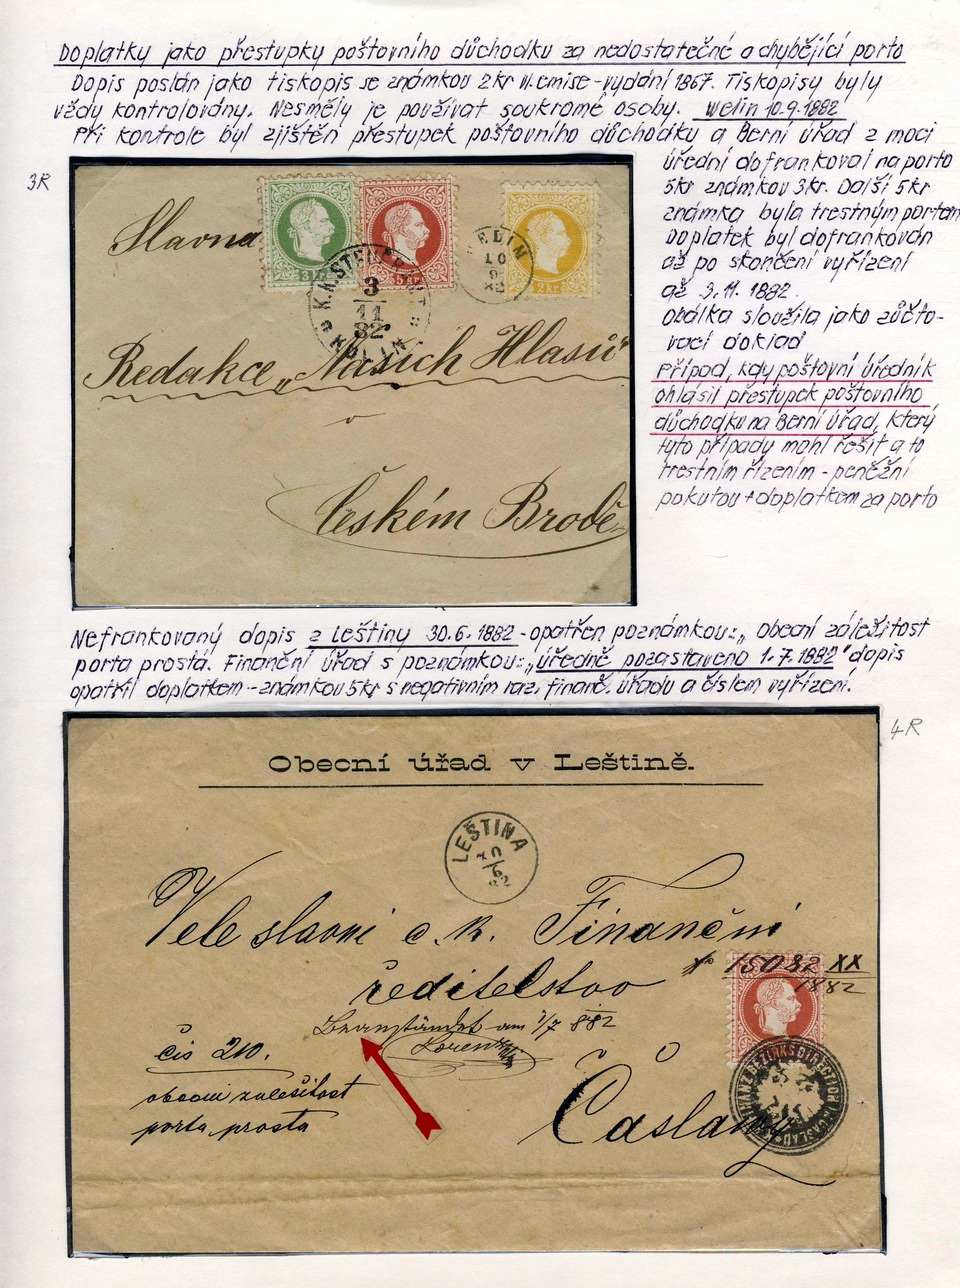 Doplatky jako přestupky poštovního důchodku za nedostatečné a chybějící porto
Dopis poslán jako tiskopis se známkou 2kr V. emise - vydání 1867. Tiskopisy byly
vždy kontrolovány. Nesměly je používat soukromé osoby. Welin 10.9.1882
Při kontrole byl zjištěn přestupek poštovního důchodku a Berní úřad z moci
úřední dofrankoval na porto
5kr známkou 3kr. Další 5kr
známka byla trestným portem
Doplatek byl dofrankován
až po skončení vyřízení
až 3.11.1882.
Obálka sloužila jako zúčto-
vací doklad
Případ, kdy poštovní úředník
ohlásil přestupek poštovního
důchodku na Berní úřad, který
tyto případy mohl řešit a to
trestním řízením - peněžní
pokutou + doplatkem za porto
3R
Slavna
3 kr.
5 kr.
2 kr.
ELIN
10
9
82
3
11
82
Redakce „Našich Hlasů"
v
Českém Brodě
Nefrankovaný dopis z Leštiny 30.6.1882 - opatřen poznámkou: „Obecní záležitost
porta prostá. Finanční úřad s poznámkou: „úředně pozastaveno 1.7.1882" dopis
opatřil doplatkem - známkou 5kr s negativním raz. finanč. úřadu a číslem vyřízení.
4R
Obecní úřad v Leštině.
LEŠTINA
6
82
Veleslavné c. k. Finanční
ředitelstvo
15082 XX
1882
Beanständet am 1/7 882
čís 210.
obecní záležitost
porta prosta
Čáslavy